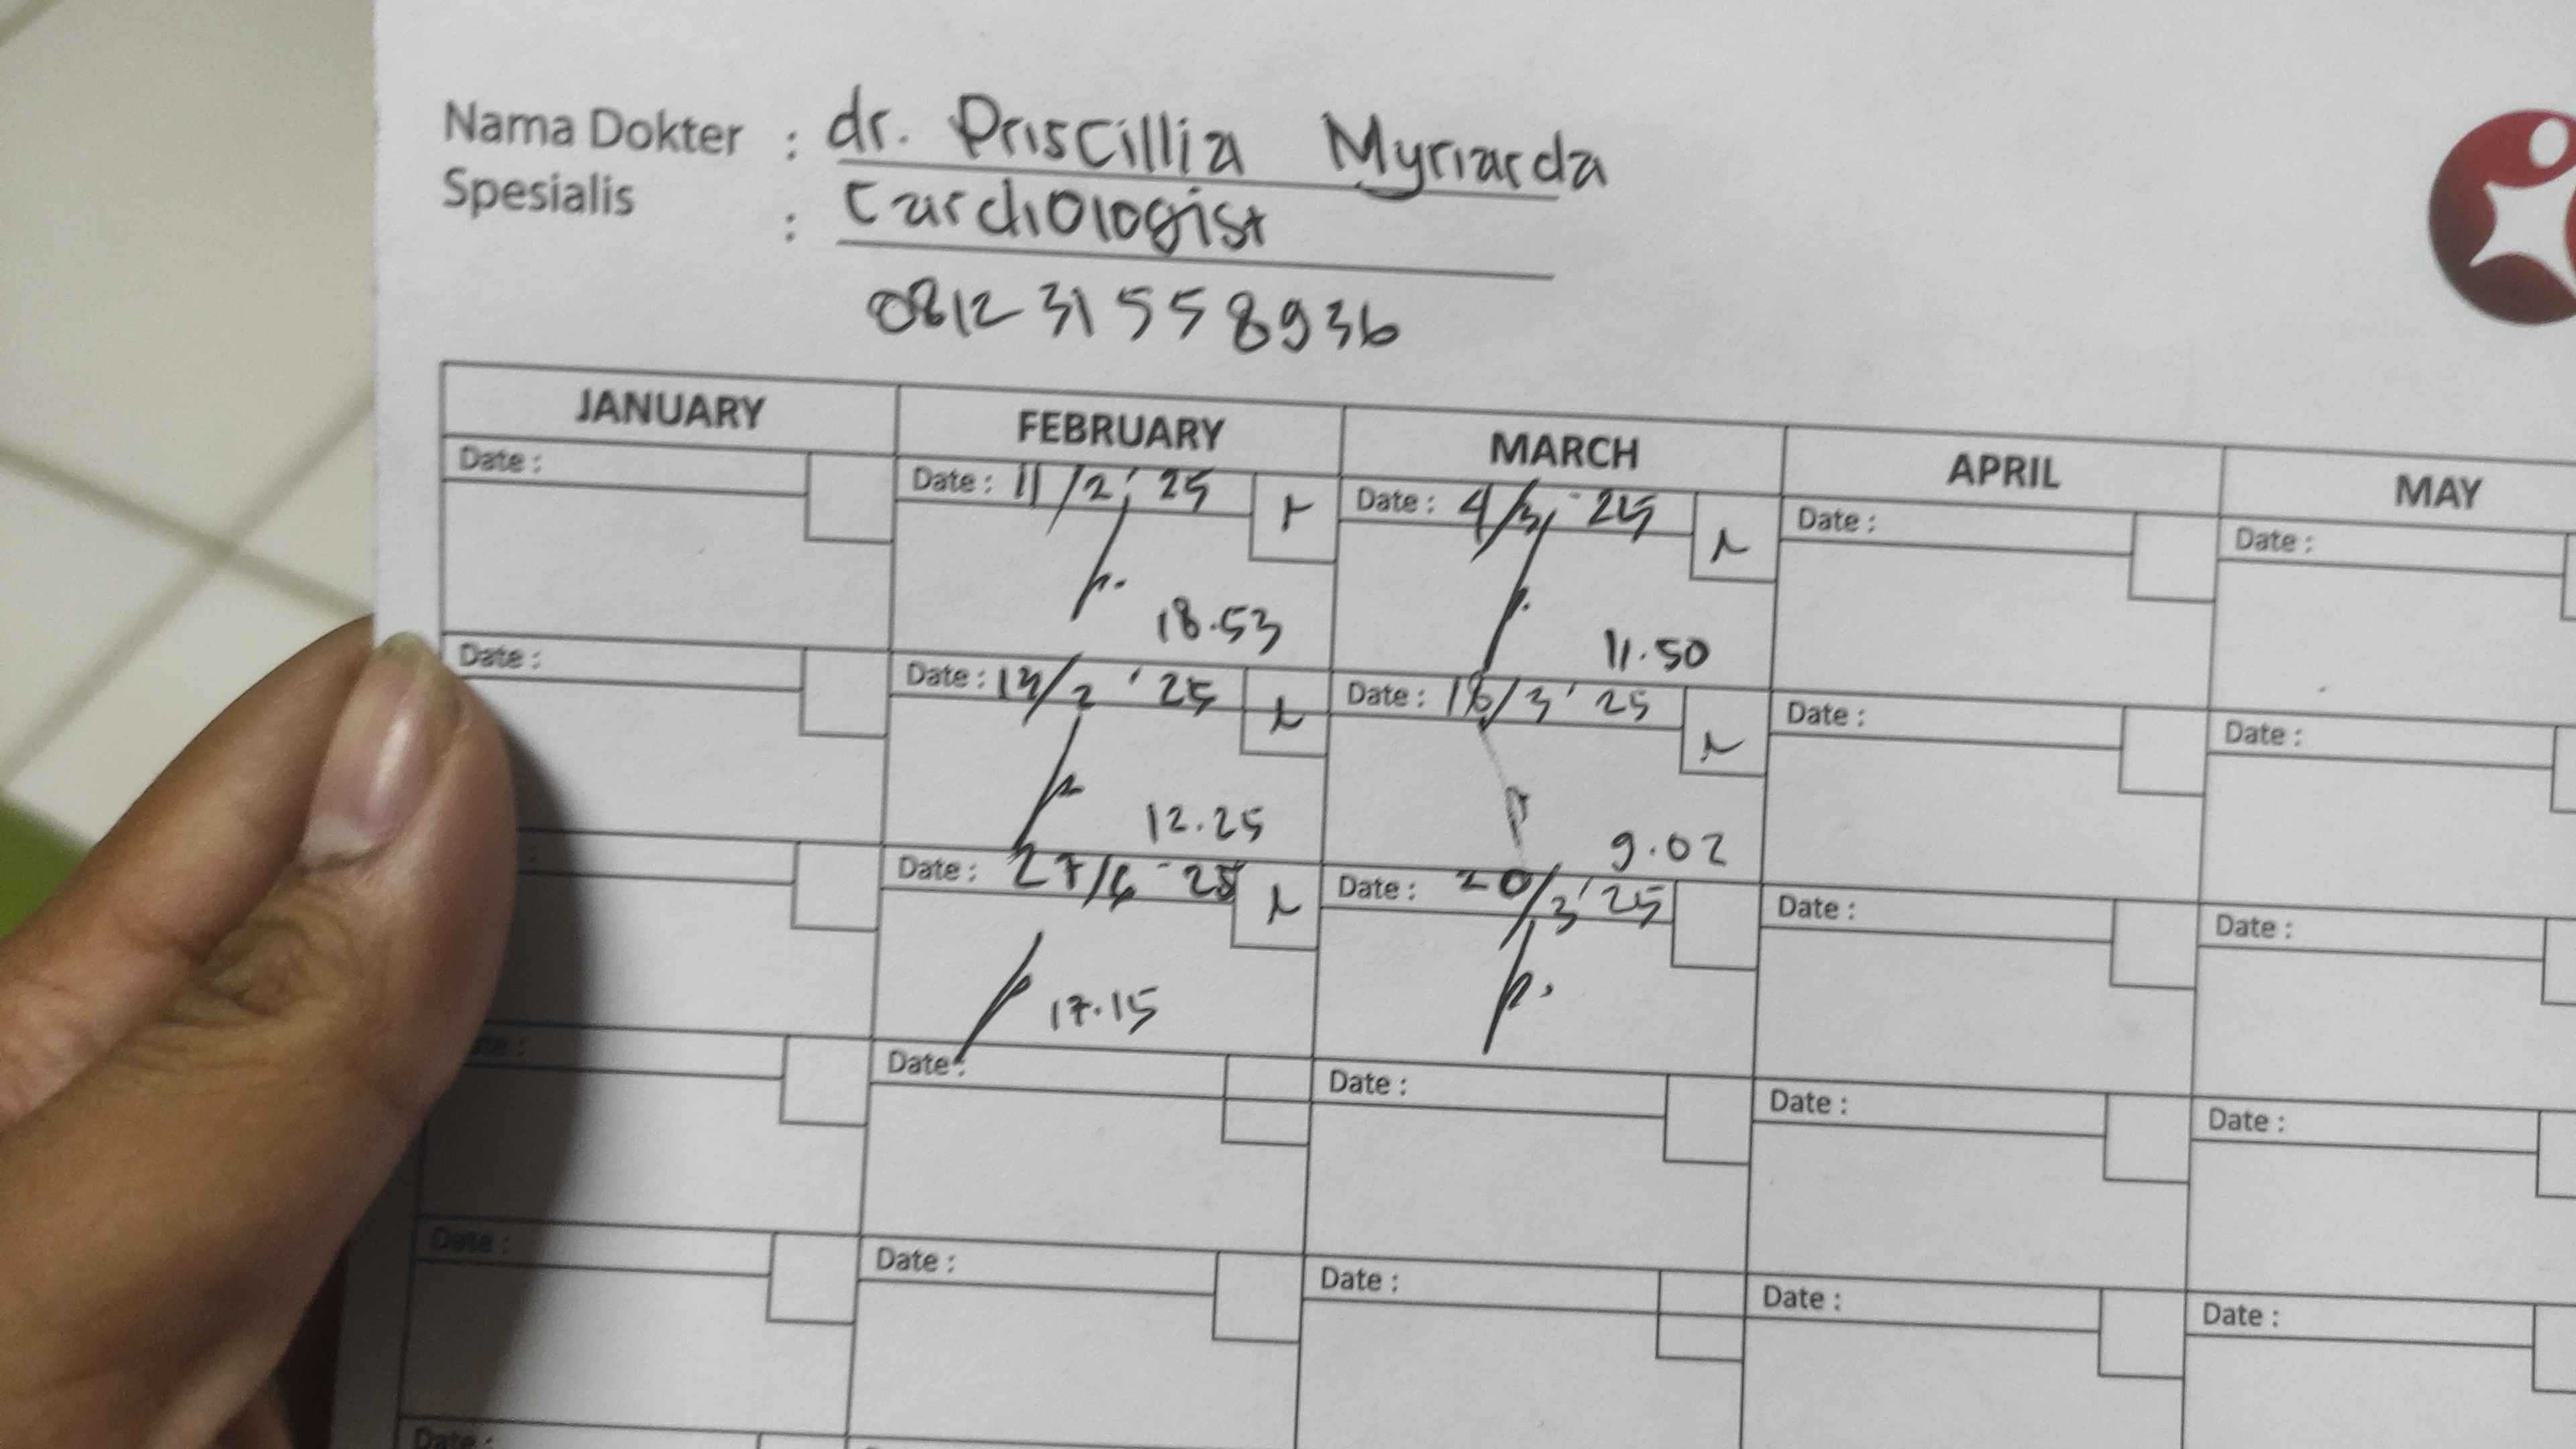 Nama Dokter : dr. Priscillia Myriarda
Spesialis : Cardiologist
081231558936
JANUARY FEBRUARY MARCH APRIL MAY
Date : Date : 11/2 '25 Date : 4/3 '25 Date : Date :
18.53 11.50
Date : Date : /2 '25 Date : 18/3 '25 Date : Date :
12.25 9.02
Date : 27/ '25 Date : 20/3 '25 Date : Date :
17.15
Date : Date : Date : Date :
Date : Date : Date : Date : Date :
Date :